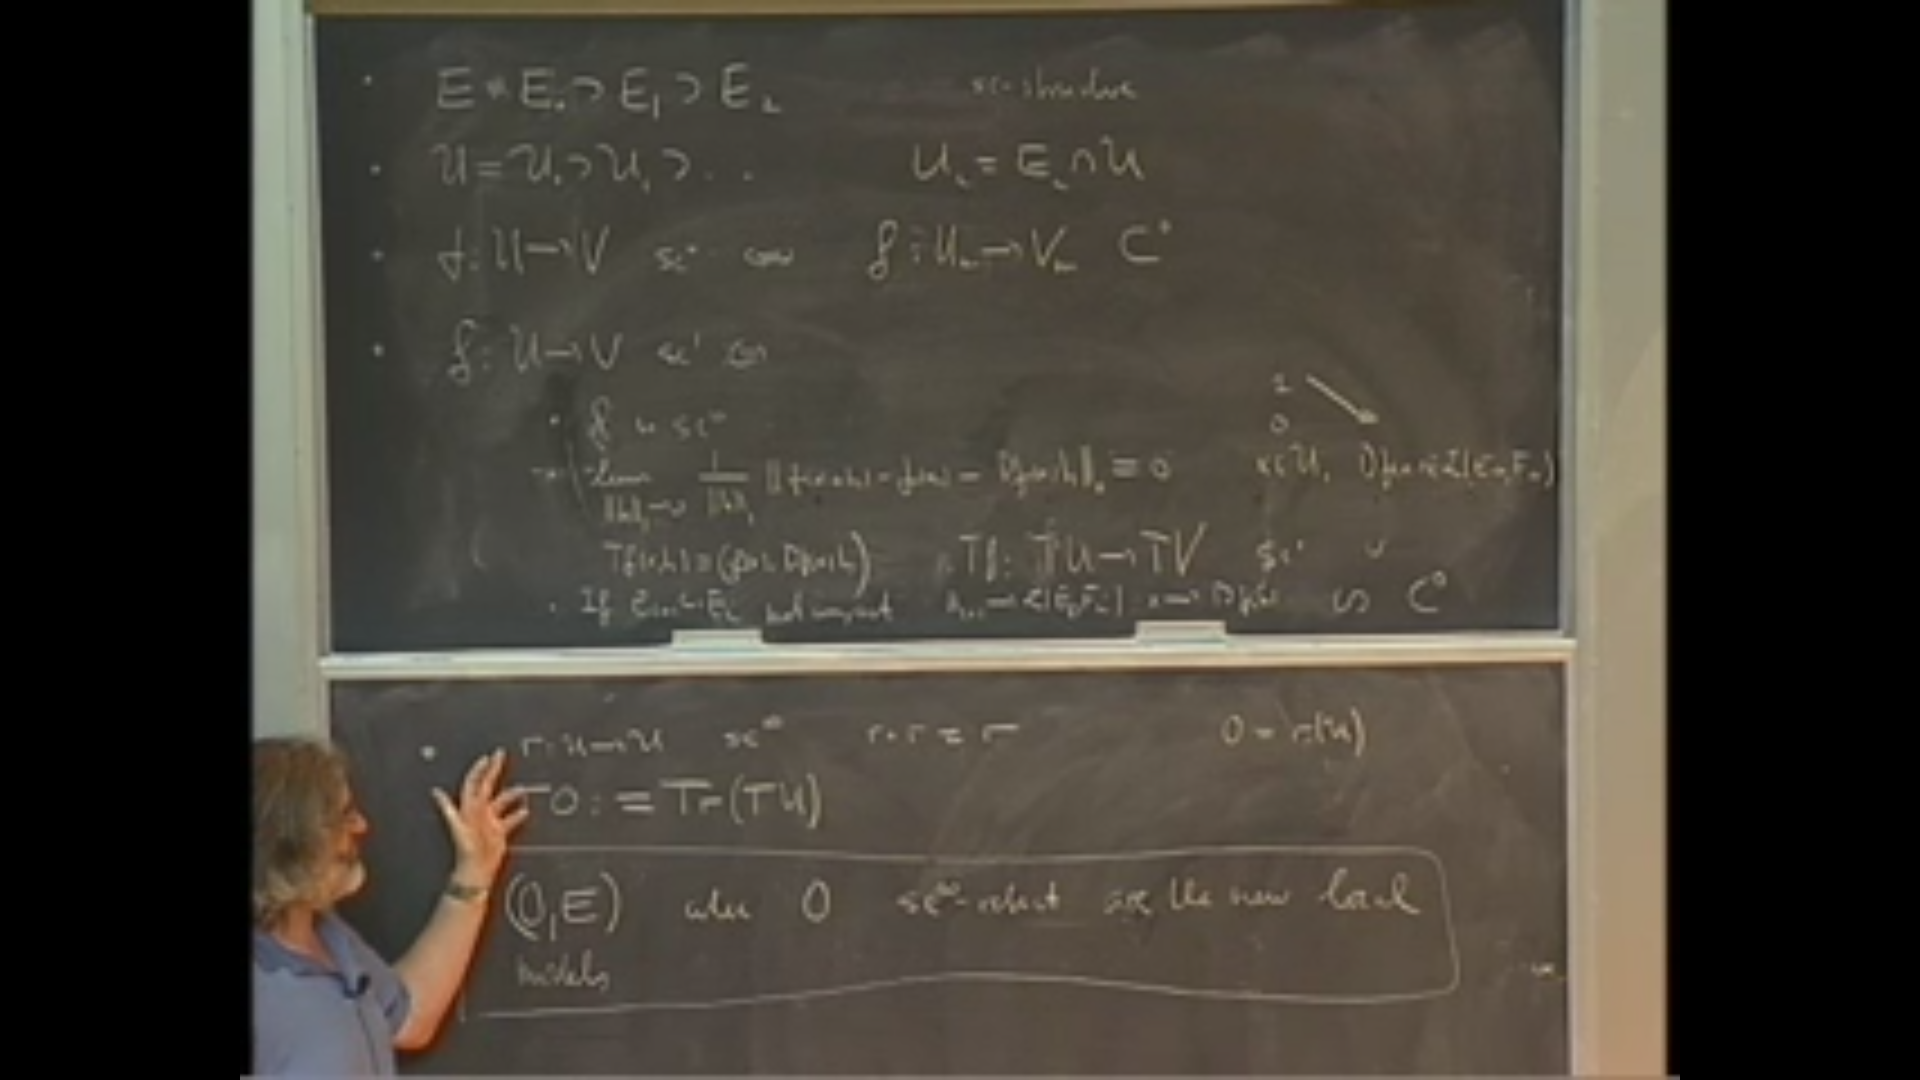 · E = E₀ ⊃ E₁ ⊃ E₂ sc-structure
· U = U₀ ⊃ U₁ ⊃ . . Uᵢ = Eᵢ ∩ U
· f: U → V sc⁰ f: Uₘ → Vₘ C⁰
· f: U → V sc¹
· f is sc⁰
1
0
lim 1/‖h‖₁ ‖f(x+h) - f(x) - Df(x)h‖₀ = 0 x ∈ U₁ Df(x) ∈ L(E₀, F₀)
‖h‖₁ → 0
Tf(x,h) = (f(x), Df(x)h) Tf: TU → TV sc⁰
· If not compact → Df(x) C⁰
· r: U → U sc^∞ r∘r = r O = r(U)
TO := Tr(TU)
(O, E) where O sc^∞-retract are the new local
models